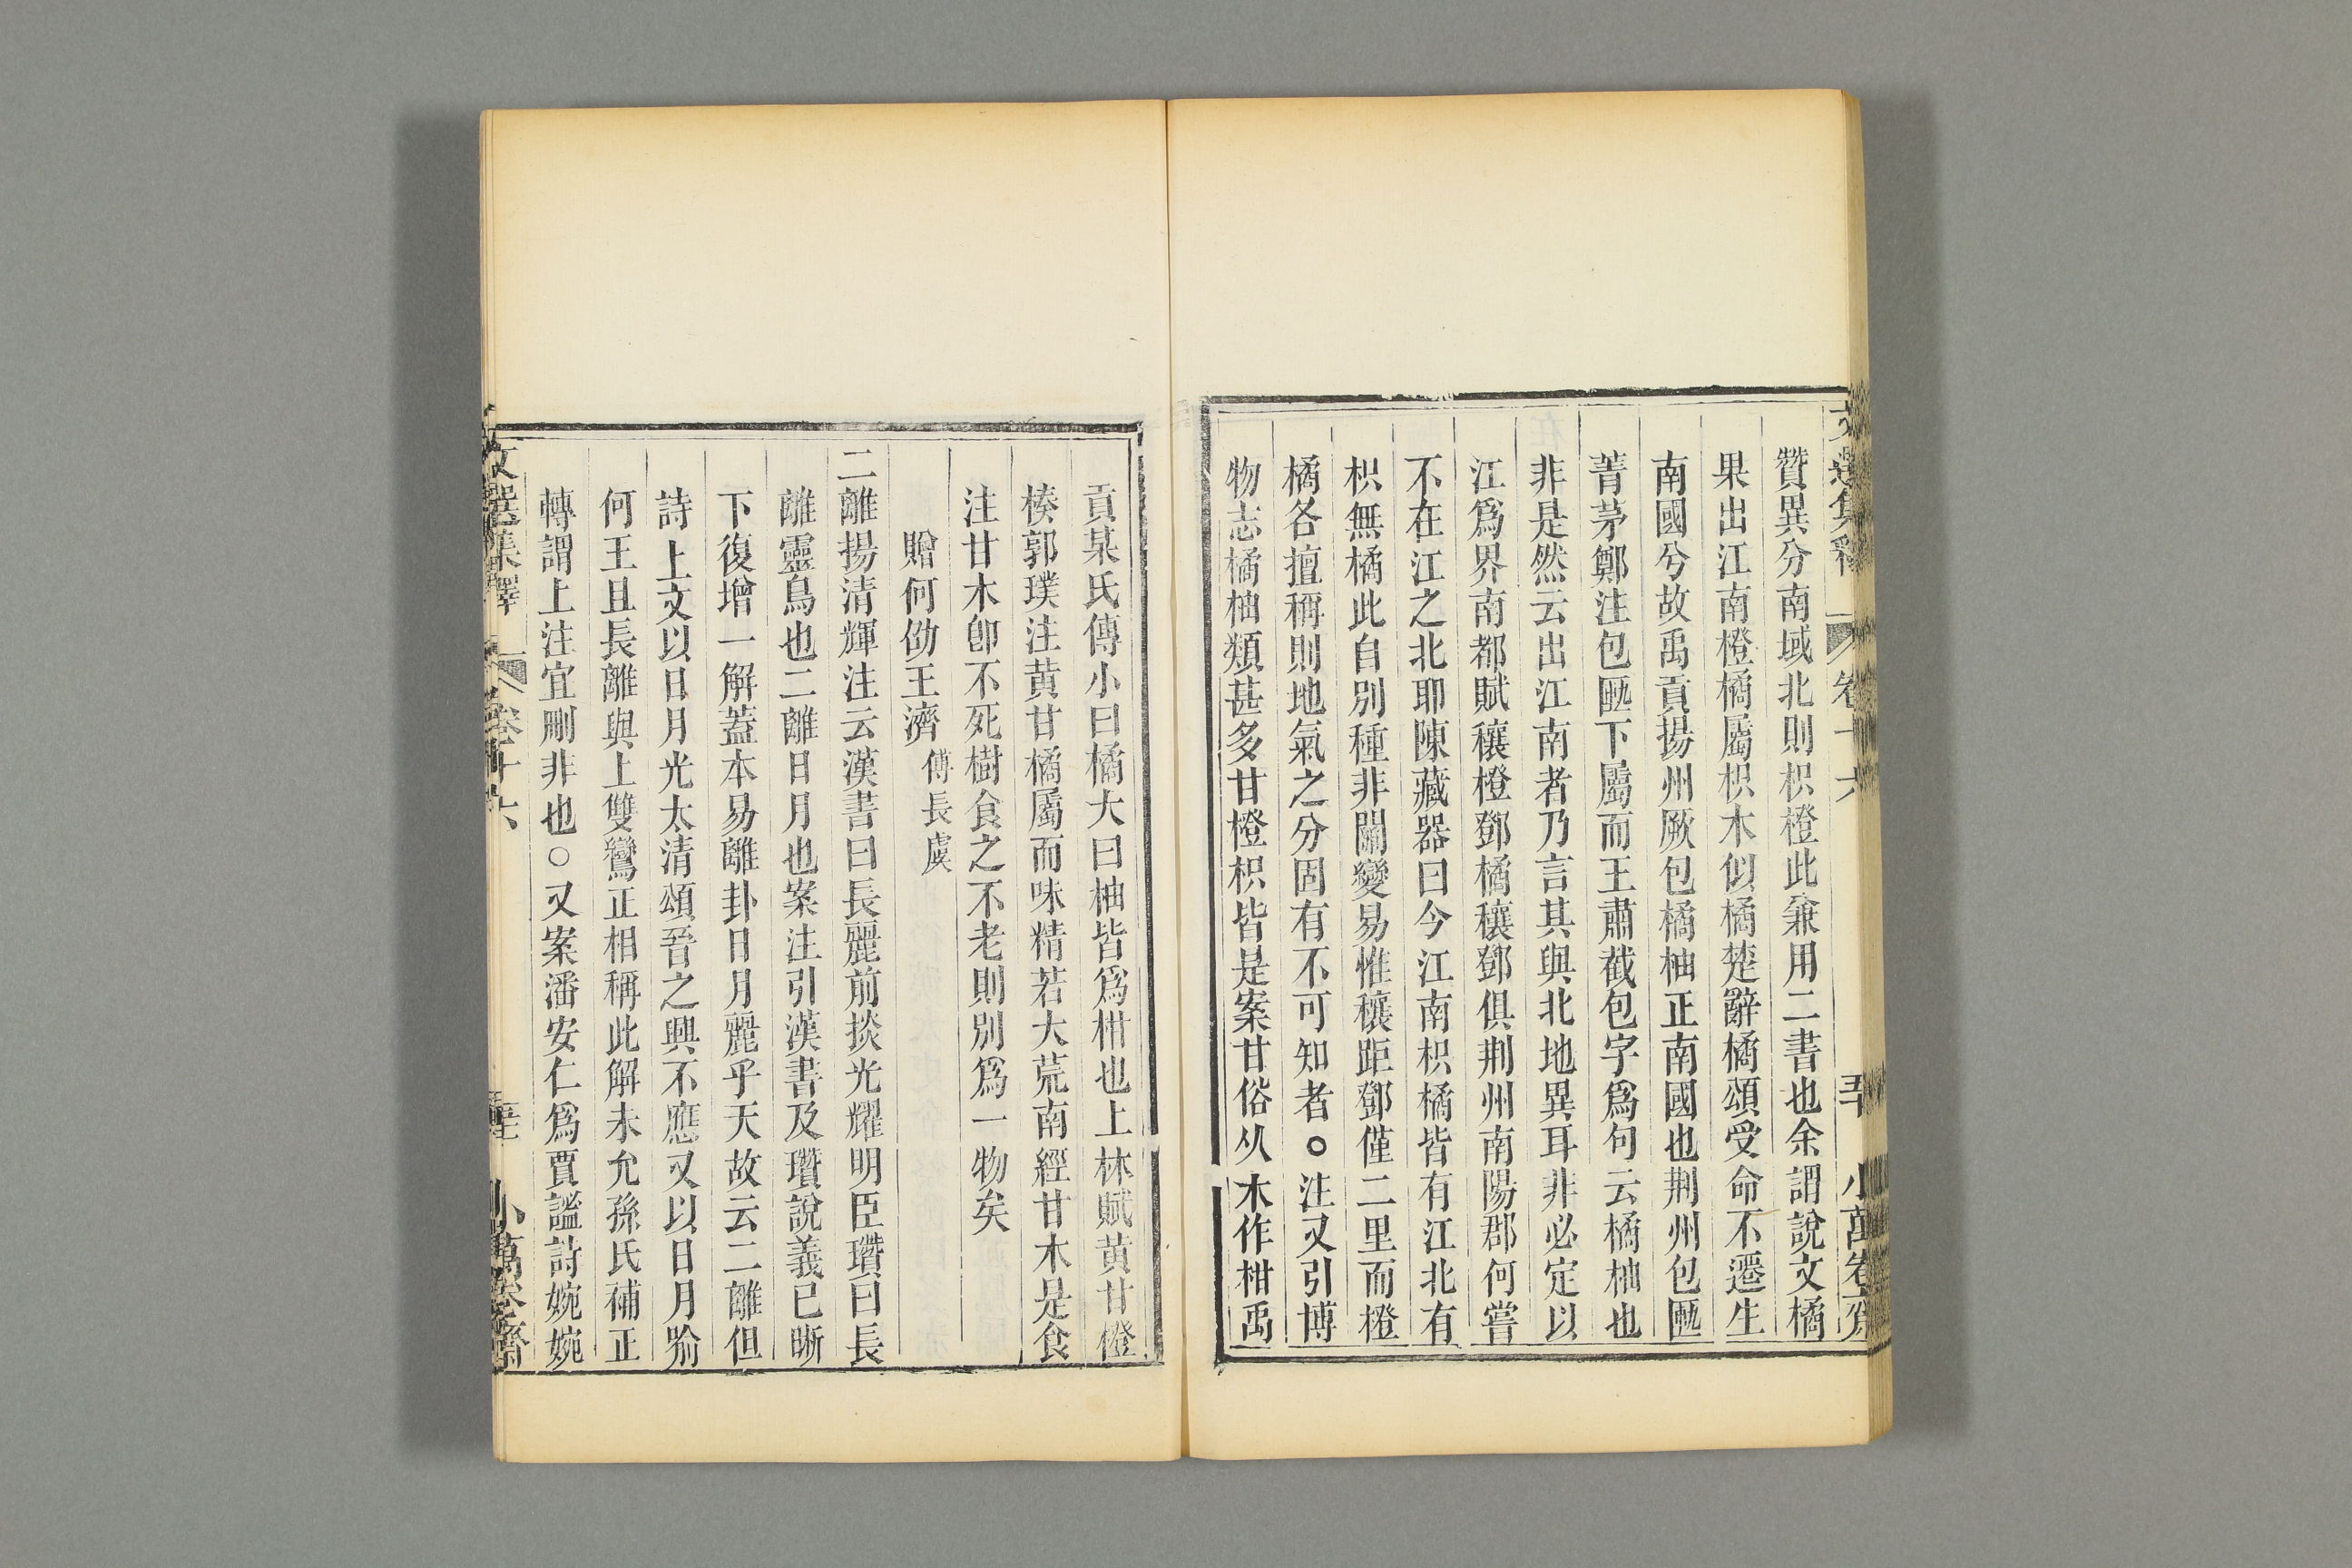 文選集釋 卷十六 五十 小萬卷齋
贊異分南域北則枳橙此兼用二書也余謂說文橘
果出江南橙橘屬枳木似橘楚辭橘頌受命不遷生
南國兮故禹貢揚州厥包橘柚正南國也荆州包匭
菁茅鄭注包匭下屬而王肅截包字爲句云橘柚也
非是然云出江南者乃言其與北地異耳非必定以
江爲界南都賦穰橙鄧橘穰鄧俱荆州南陽郡何嘗
不在江之北耶陳藏器曰今江南枳橘皆有江北有
枳無橘此自別種非關變易惟穰距鄧僅二里而橙
橘各擅稱則地氣之分固有不可知者○注又引博
物志橘柚類甚多甘橙枳皆是案甘俗从木作柑禹
貢某氏傳小曰橘大曰柚皆爲柑也上林賦黃甘橙
楱郭璞注黃甘橘屬而味精若大荒南經甘木是食
注甘木卽不死樹食之不老則別爲一物矣
贈何劭王濟 傅長虞
二離揚清輝注云漢書曰長麗前掞光耀明臣瓚曰長
離靈鳥也二離日月也案注引漢書及瓚說義已晰
下復增一解蓋本易離卦日月麗乎天故云二離但
詩上文以日月光太清頌晉之興不應又以日月喻
何王且長離與上雙鸞正相稱此解未允孫氏補正
轉謂上注宜刪非也○又案潘安仁爲賈謐詩婉婉
文選集釋 卷十六 小萬卷齋